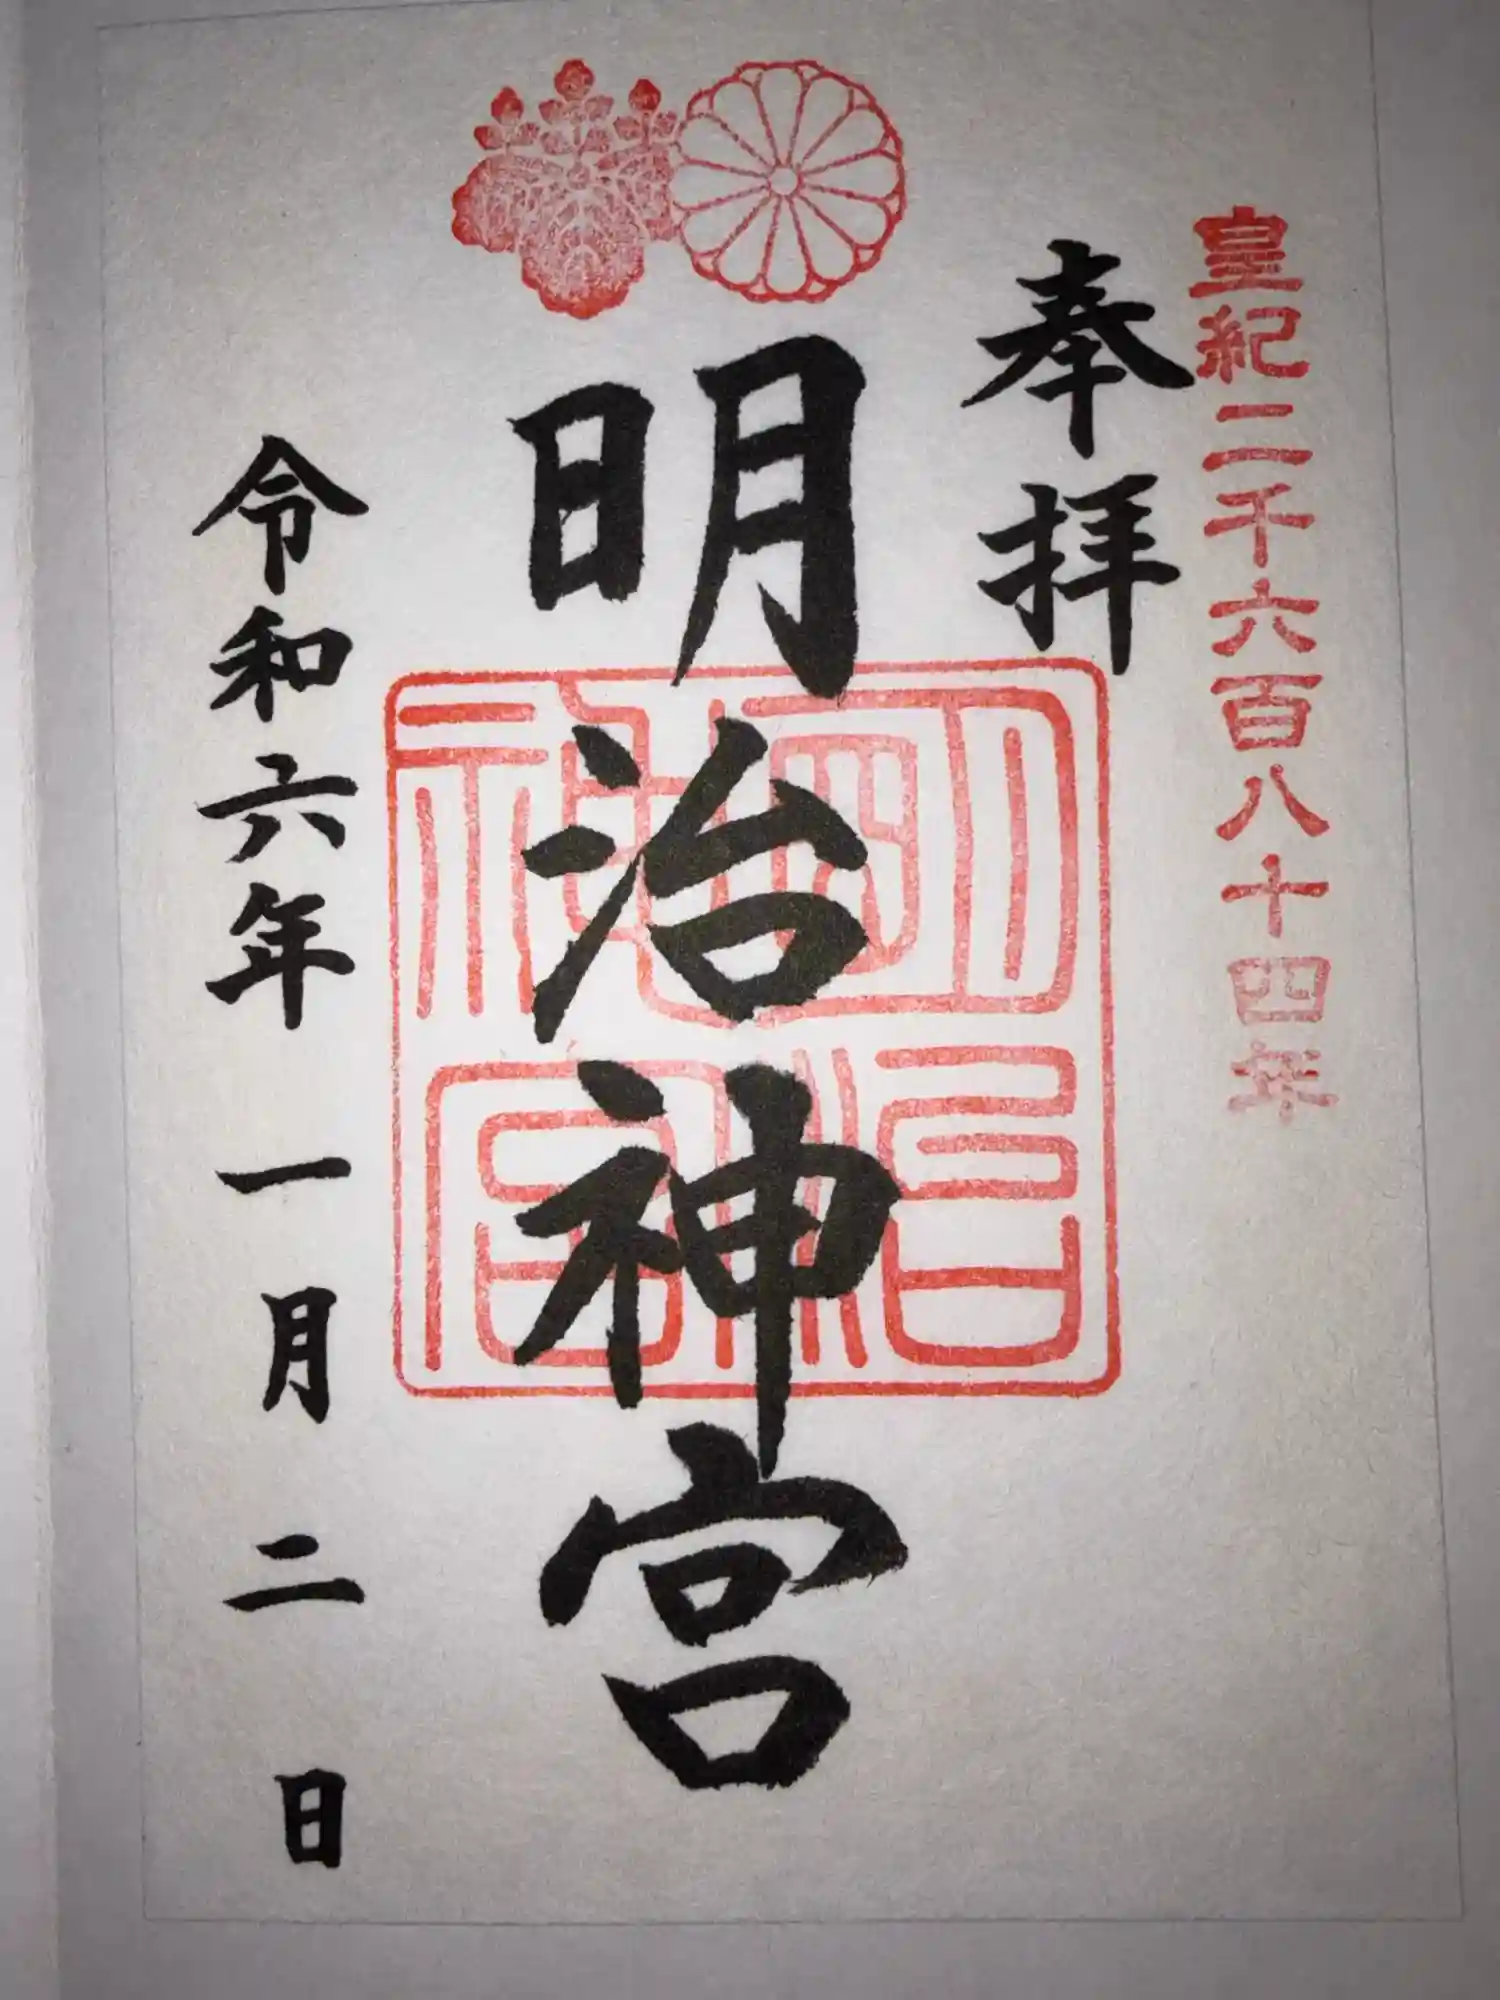 皇紀二千六百八十四年
奉拝
明治神宮
明治神宮
令和六年一月二日